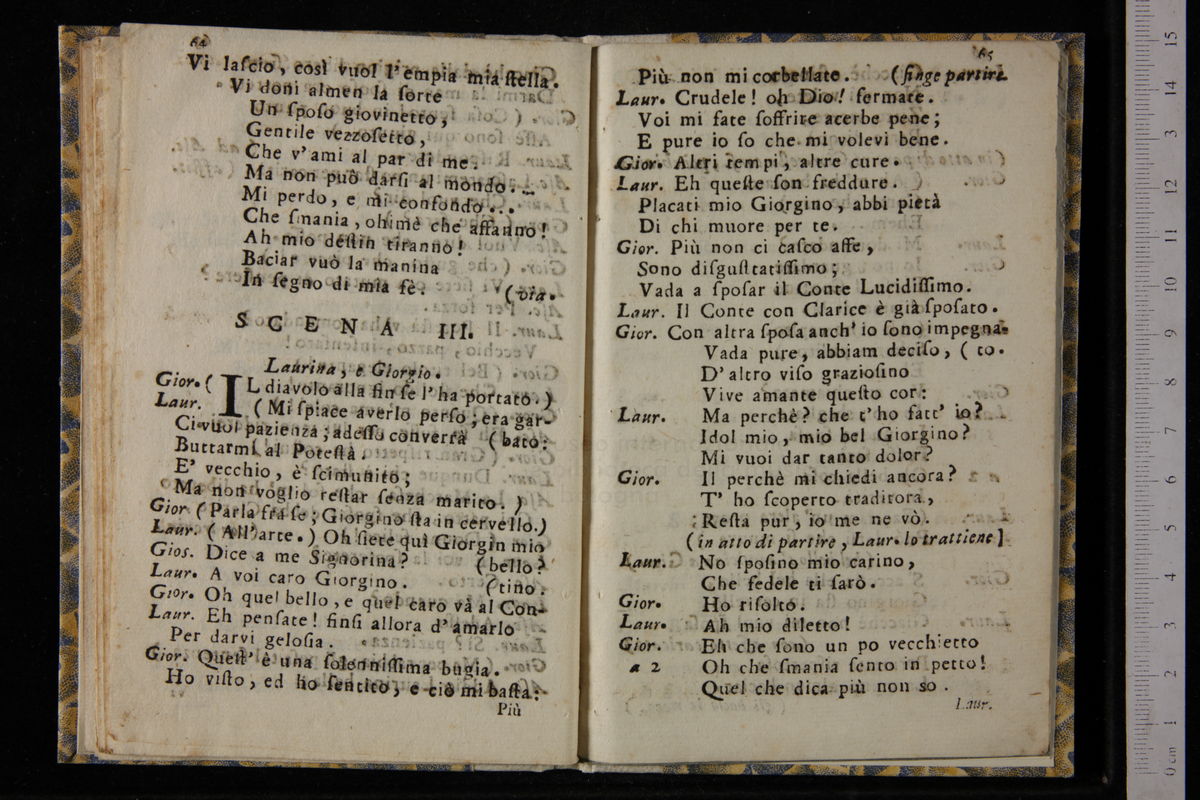 64
Vi laſcio, così vuol l'empia mia ſtella.
Vi doni almen la ſorte
Un ſpoſo giovinetto,
Gentile vezzoſetto,
Che v'ami al par di me.
Ma non può darſi al mondo...
Mi perdo, e mi confondo...
Che ſmania, ohimè che affanno!
Ah mio deſtin tiranno!
Baciar vuò la manina
In ſegno di mia fè. (via.
SCENA III.
Laurina, e Giorgio.
Gior. ( IL diavolo alla fin ſe l'ha portato.)
Laur. (Mi ſpiace averlo perſo; era gar-
Ci vuol pazienza; adeſſo converrà (bato:
Buttarmi al Poteſtà.
E' vecchio, è ſcimunito;
Ma non voglio reſtar ſenza marito. )
Gior (Parla fra ſe; Giorgino ſta in cervello.)
Laur. ( All'arte.) Oh ſiete quì Giorgin mio
Gios. Dice a me Signorina? (bello?
Laur. A voi caro Giorgino. (tino.
Gior. Oh quel bello, e quel caro và al Con-
Laur. Eh penſate! finſi allora d'amarlo
Per darvi geloſia.
Gior. Queſt' è una ſolenniſſima bugia.
Ho viſto, ed ho ſentito, e ciò mi baſta:
Più
65
Più non mi corbellate. (finge partire
Laur. Crudele! oh Dio! fermate.
Voi mi fate ſoffrire acerbe pene;
E pure io ſo che mi volevi bene.
Gior. Altri tempi, altre cure.
Laur. Eh queſte ſon freddure.
Placati mio Giorgino, abbi pietà
Di chi muore per te.
Gior. Più non ci caſco affe,
Sono diſguſtatiſſimo;
Vada a ſpoſar il Conte Lucidiſſimo.
Laur. Il Conte con Clarice è già ſpoſato.
Gior. Con altra ſpoſa anch' io ſono impegna-
Vada pure, abbiam deciſo, ( to.
D'altro viſo grazioſino
Vive amante queſto cor:
Laur. Ma perchè? che t'ho fatt' io?
Idol mio, mio bel Giorgino?
Mi vuoi dar tanto dolor?
Gior. Il perchè mi chiedi ancora?
T' ho ſcoperto traditora,
Reſta pur, io me ne vò.
(in atto di partire, Laur. lo trattiene]
Laur. No ſpoſino mio carino,
Che fedele ti ſarò.
Gior. Ho riſolto.
Laur. Ah mio diletto!
Gior. Eh che ſono un po vecchietto
a 2 Oh che ſmania ſento in petto!
Quel che dica più non so.
Laur.